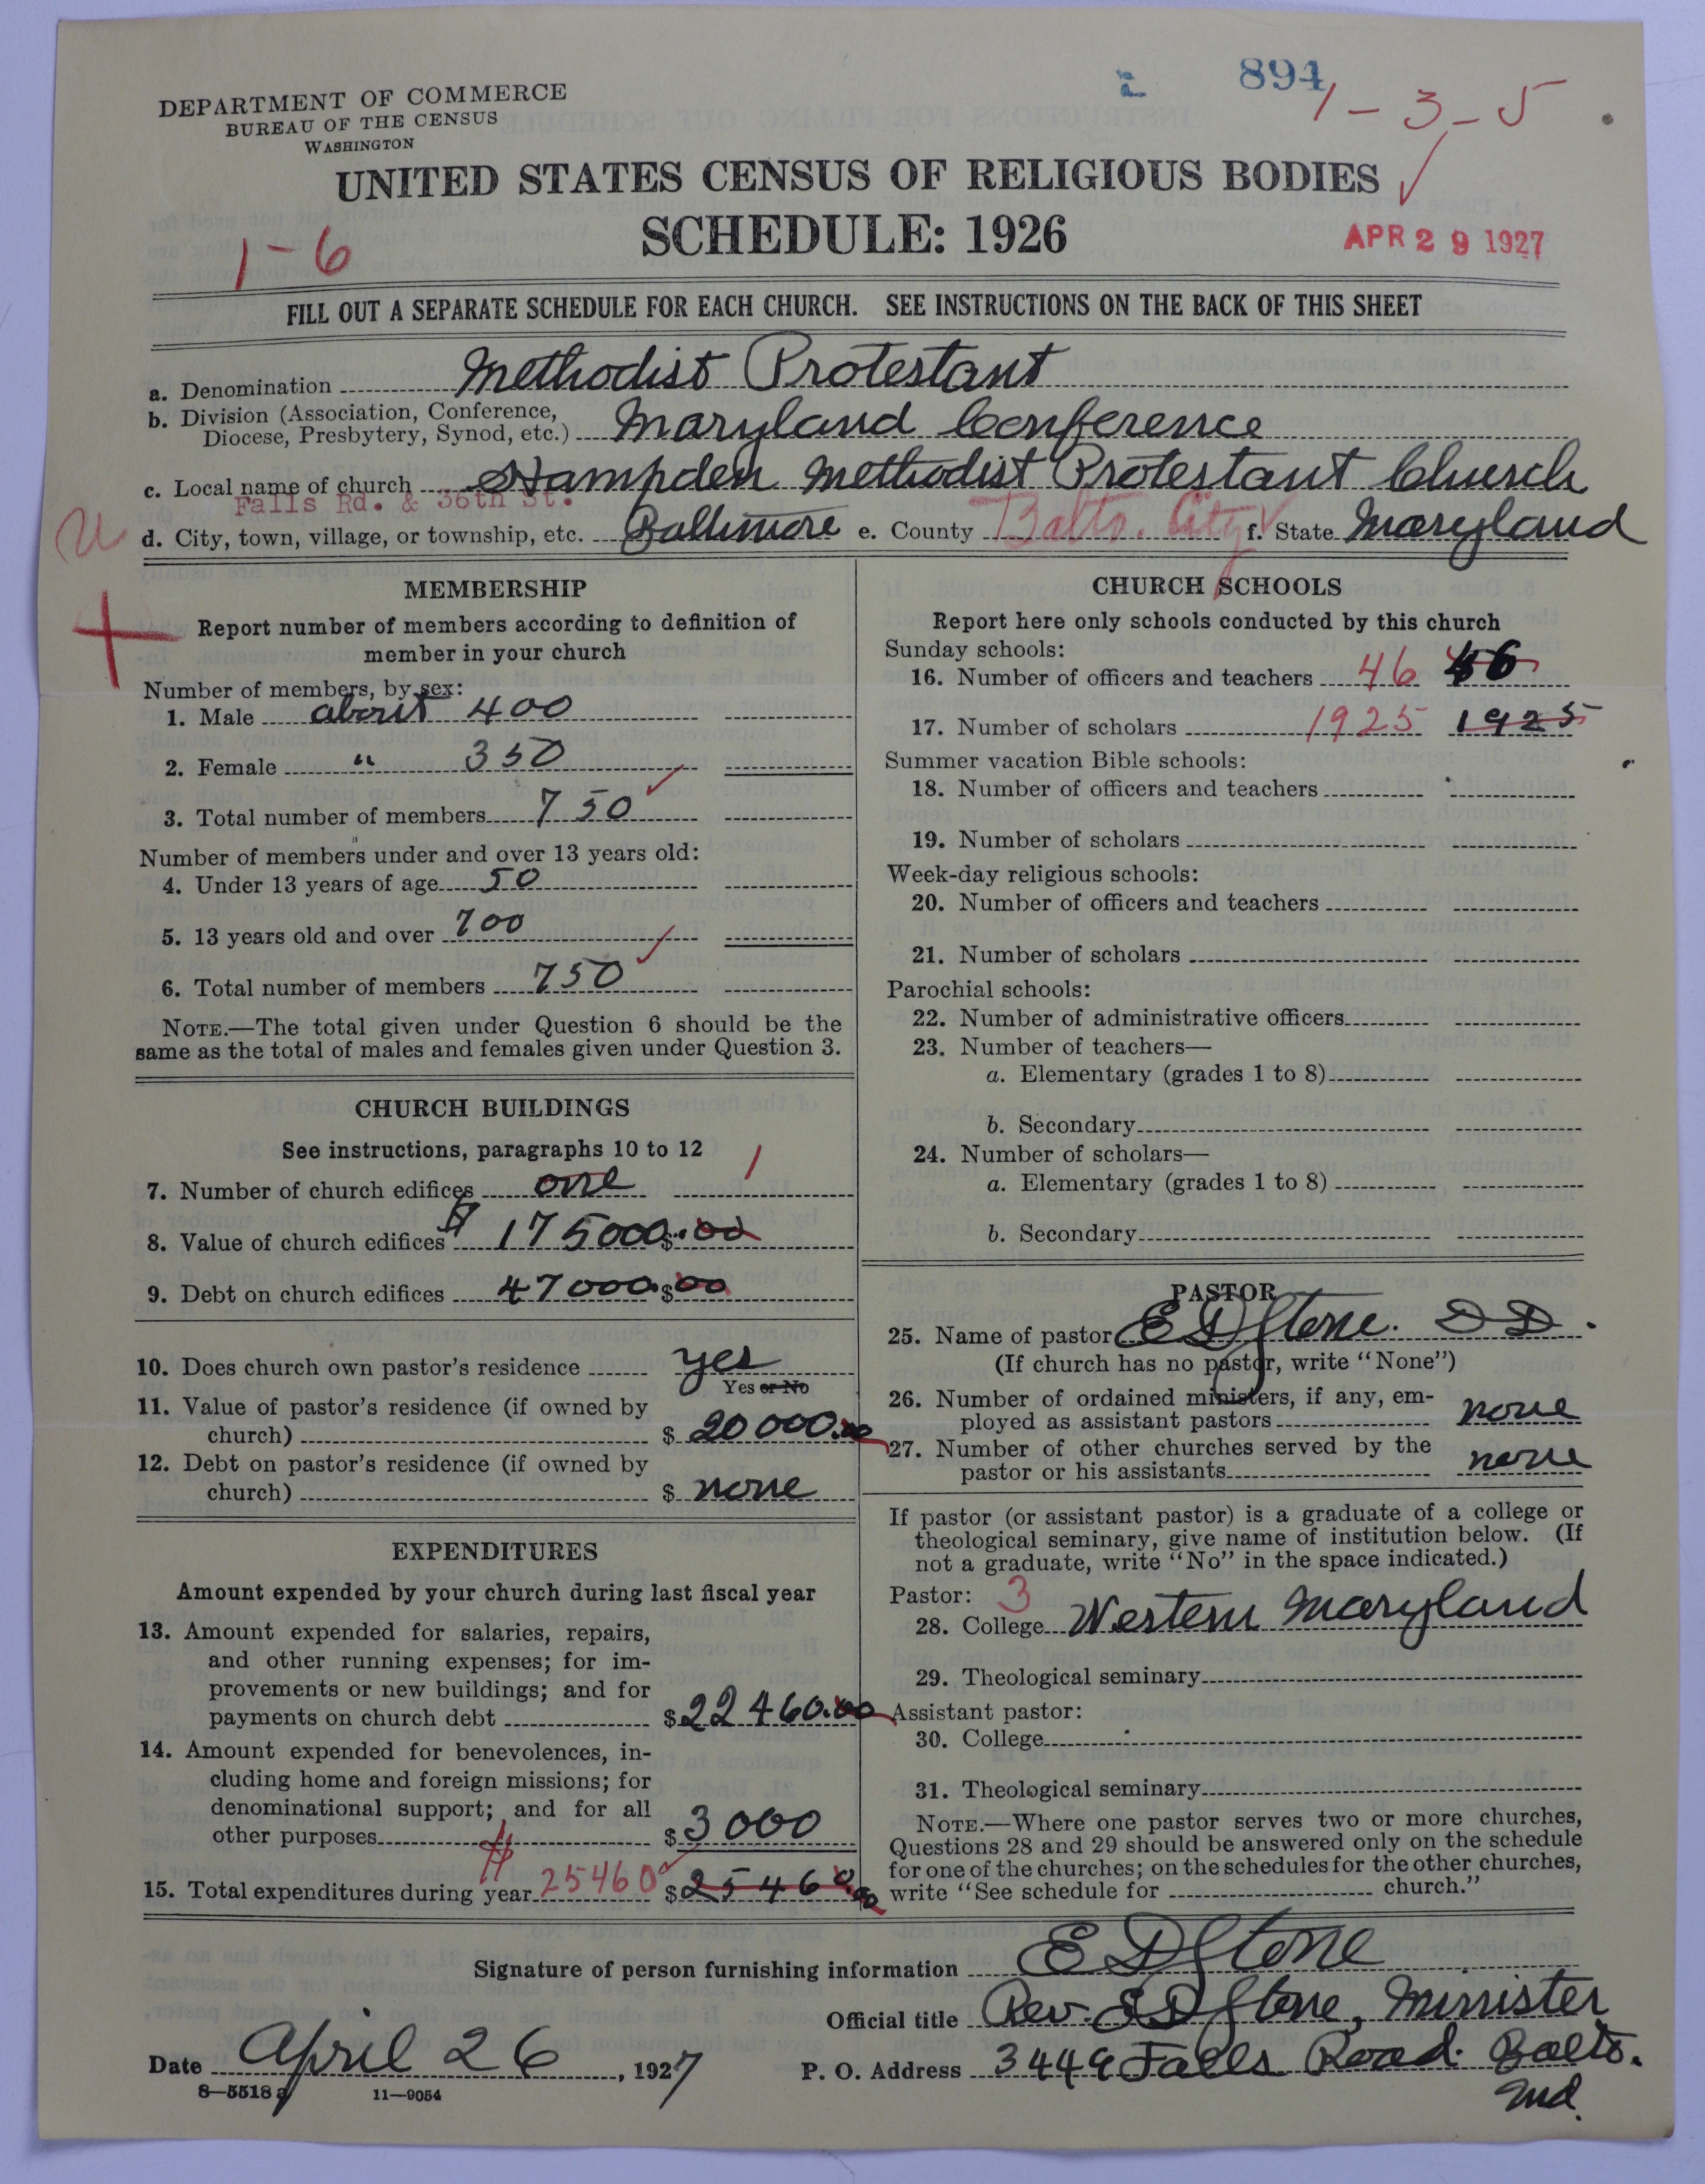 894
1-3-5
DEPARTMENT OF COMMERCE
BUREAU OF THE CENSUS
WASHINGTON
UNITED STATES CENSUS OF RELIGIOUS BODIES
SCHEDULE: 1926
1-6
APR 29 1927
FILL OUT A SEPARATE SCHEDULE FOR EACH CHURCH. SEE INSTRUCTIONS ON THE BACK OF THIS SHEET
a. Denomination Methodist Protestant
b. Division (Association, Conference,
Diocese, Presbytery, Synod, etc.) Maryland Conference
c. Local name of church Hampden Methodist Protestant Church
Falls Rd. & 36th St.
d. City, town, village, or township, etc. Baltimore e. County Balto. City f. State Maryland
MEMBERSHIP
Report number of members according to definition of
member in your church
Number of members, by sex:
1. Male about 400
2. Female " 350
3. Total number of members 750
Number of members under and over 13 years old:
4. Under 13 years of age 50
5. 13 years old and over 700
6. Total number of members 750
NOTE.—The total given under Question 6 should be the
same as the total of males and females given under Question 3.
CHURCH BUILDINGS
See instructions, paragraphs 10 to 12
7. Number of church edifices one 1
8. Value of church edifices $ 175000.00
9. Debt on church edifices 47000.$00
10. Does church own pastor's residence yes
Yes or No
11. Value of pastor's residence (if owned by
church) $ 20000.00
12. Debt on pastor's residence (if owned by
church) $ none
EXPENDITURES
Amount expended by your church during last fiscal year
13. Amount expended for salaries, repairs,
and other running expenses; for im-
provements or new buildings; and for
payments on church debt $22460.00
14. Amount expended for benevolences, in-
cluding home and foreign missions; for
denominational support; and for all
other purposes $3000
15. Total expenditures during year $ 25460 $25460.00
CHURCH SCHOOLS
Report here only schools conducted by this church
Sunday schools:
16. Number of officers and teachers 46 46
17. Number of scholars 1925 1925
Summer vacation Bible schools:
18. Number of officers and teachers
19. Number of scholars
Week-day religious schools:
20. Number of officers and teachers
21. Number of scholars
Parochial schools:
22. Number of administrative officers
23. Number of teachers—
a. Elementary (grades 1 to 8)
b. Secondary
24. Number of scholars—
a. Elementary (grades 1 to 8)
b. Secondary
PASTOR
25. Name of pastor E D Stone. DD.
(If church has no pastor, write "None")
26. Number of ordained ministers, if any, em-
ployed as assistant pastors none
27. Number of other churches served by the
pastor or his assistants none
If pastor (or assistant pastor) is a graduate of a college or
theological seminary, give name of institution below. (If
not a graduate, write "No" in the space indicated.)
Pastor: 3
28. College Western Maryland
29. Theological seminary
Assistant pastor:
30. College
31. Theological seminary
NOTE.—Where one pastor serves two or more churches,
Questions 28 and 29 should be answered only on the schedule
for one of the churches; on the schedules for the other churches,
write "See schedule for church."
Signature of person furnishing information E D Stone
Official title Rev. E D Stone, Minister
Date April 26, 1927 P. O. Address 3449 Falls Road. Balto.
Md.
8—5518a 11—9054